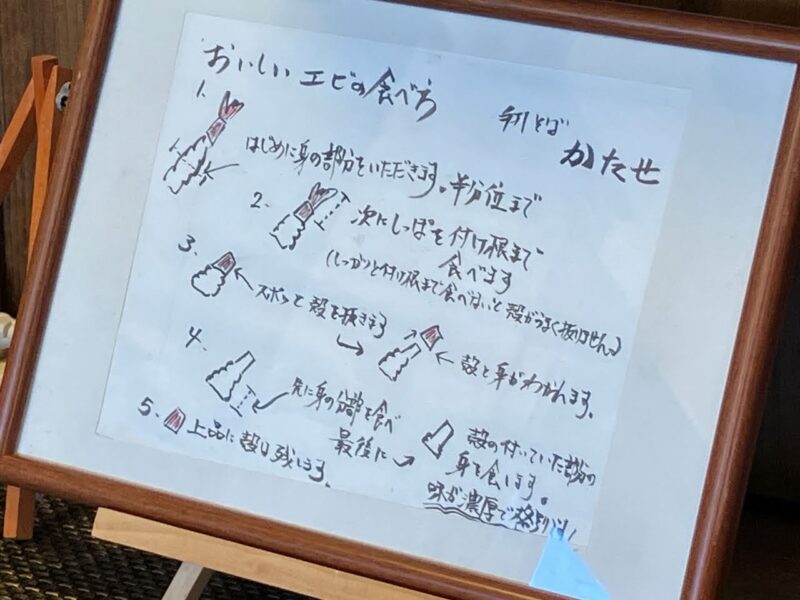 おいしいエビの食べ方
手打そば
かたせ
1.
はじめに身の部分をいただきます。半分位まで
2.
次にしっぽを付け根まで
食べます
(しっかりと付け根まで食べないと殻がうまく抜けません。)
3.
スポッと殻を抜きます
殻と身がわかれます。
4.
先に身の部分を食べ
最後に
殻の付いていた部分の
身を食します。
味が濃厚で格別!!
5.
上品に殻は残します。